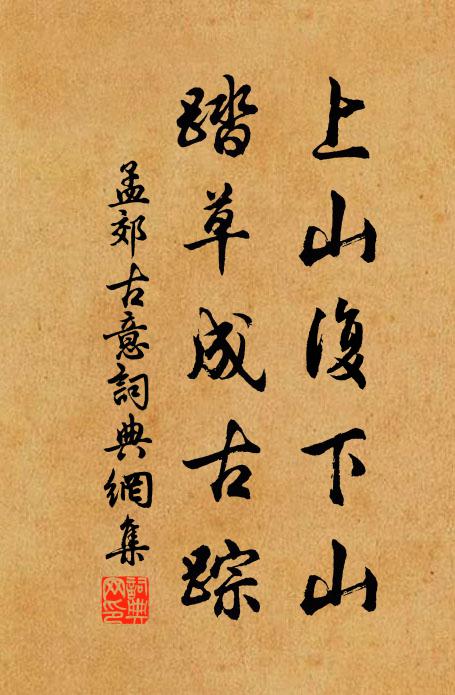 上山復下山
踏草成古踪
孟郊古意詞典網集
詞典网印